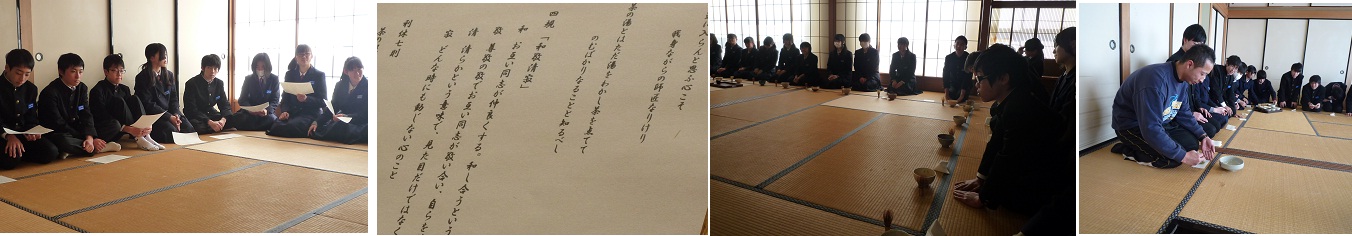 に入らんと思ふ心こそ
我身ながらの師匠なりけり
茶の湯とはただ湯をわかし茶を立てて
のむばかりなることと知るべし
四規 「和敬清寂」
和 お互い同志が仲良くする。和し合うという
敬 尊敬の敬でお互い同志が敬い合い、自らを
清 清らかという意味で、見た目だけではなく
寂 どんな時にも動じない心のこと
利休七則